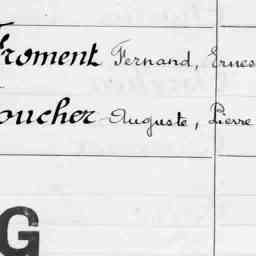 Froment Fernand, Ernes
oucher Auguste, Pierre
G